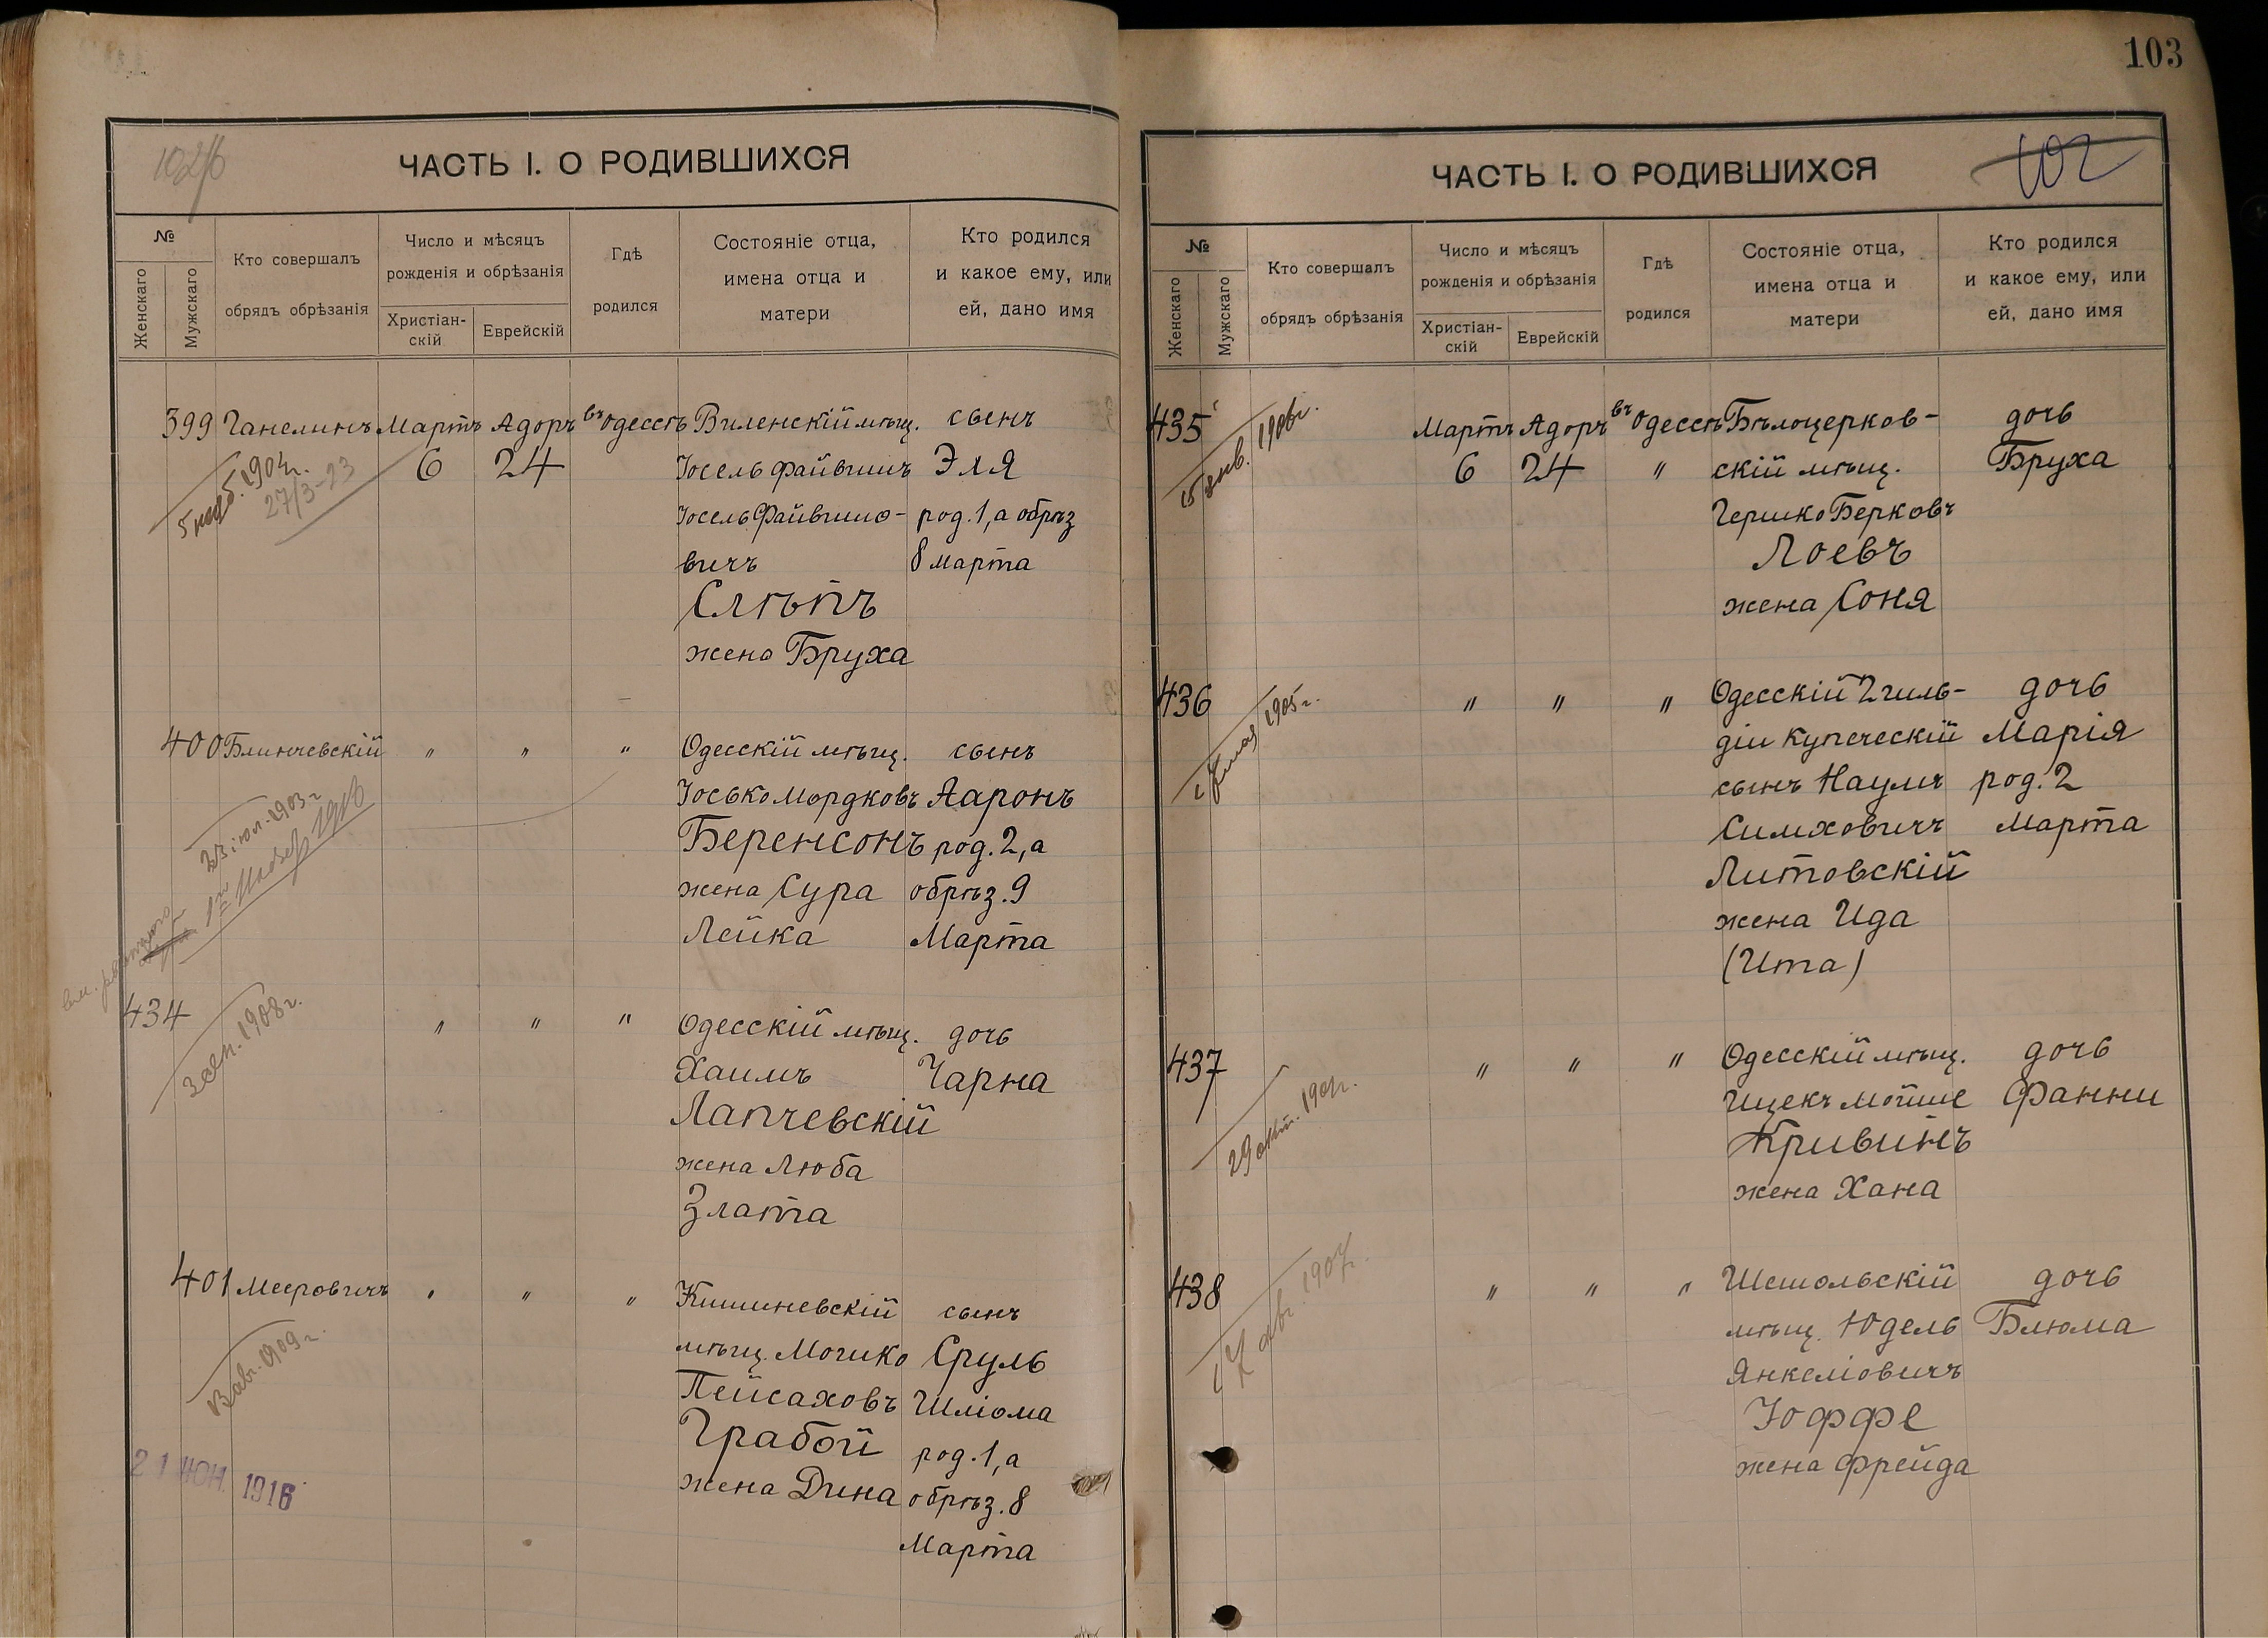 103
ЧАСТЬ I. О РОДИВШИХСЯ
№
Женскаго
Мужскаго
Кто совершалъ
обрядъ обрѣзанія
Число и мѣсяцъ
рожденія и обрѣзанія
Христіан-
скій
Еврейскій
Гдѣ
родился
Состояніе отца,
имена отца и
матери
Кто родился
и какое ему, или
ей, дано имя
399 Ганелинъ Мартъ Адоръ въ Одессѣ Виленскій мѣщ. сынъ
6 24 Іосель Файвишъ Эля
Іосель Файвишо- род. 1, а обрѣз
вичъ 8 марта
Слѣпъ
жена Бруха
1904г.
27/3-23
400 Блинчевскій " " " Одесскій мѣщ. сынъ
Іосько Мордковъ Ааронъ
Беренсонъ род. 2, а
жена Сура обрѣз. 9
Лейка Марта
23 іюл. 1903г
434 " " " Одесскій мѣщ. дочь
Хаимъ Чарна
Лапчевскій
жена Люба
Злата
1908г.
401 Мееровичъ " " " Кишиневскій сынъ
мѣщ. Мошко Сруль
Пейсаховъ Шліома
Грабой род. 1, а
жена Дина обрѣз. 8
Марта
авг. 1909г.
21 ИЮН. 1916
ЧАСТЬ I. О РОДИВШИХСЯ
102
№
Женскаго
Мужскаго
Кто совершалъ
обрядъ обрѣзанія
Число и мѣсяцъ
рожденія и обрѣзанія
Христіан-
скій
Еврейскій
Гдѣ
родился
Состояніе отца,
имена отца и
матери
Кто родился
и какое ему, или
ей, дано имя
435 Мартъ Адоръ въ Одессѣ Бѣлоцерков- дочь
6 24 " скій мѣщ. Бруха
Гершко Берковъ
Лоевъ
жена Соня
янв. 1906г.
436 " " " Одесскій 2 гиль- дочь
діи купеческій Марія
сынъ Наумъ род. 2
Симховичъ Марта
Литовскій
жена Ида
(Ита)
мая 1905г.
437 " " " Одесскій мѣщ. дочь
Ицекъ Мойше Фанни
Кривинъ
жена Хана
29 окт. 1901г.
438 " " " Шешольскій дочь
мѣщ. Юдель Блюма
Янкеліовичъ
Іоффе
жена Фрейда
авг. 1907г.